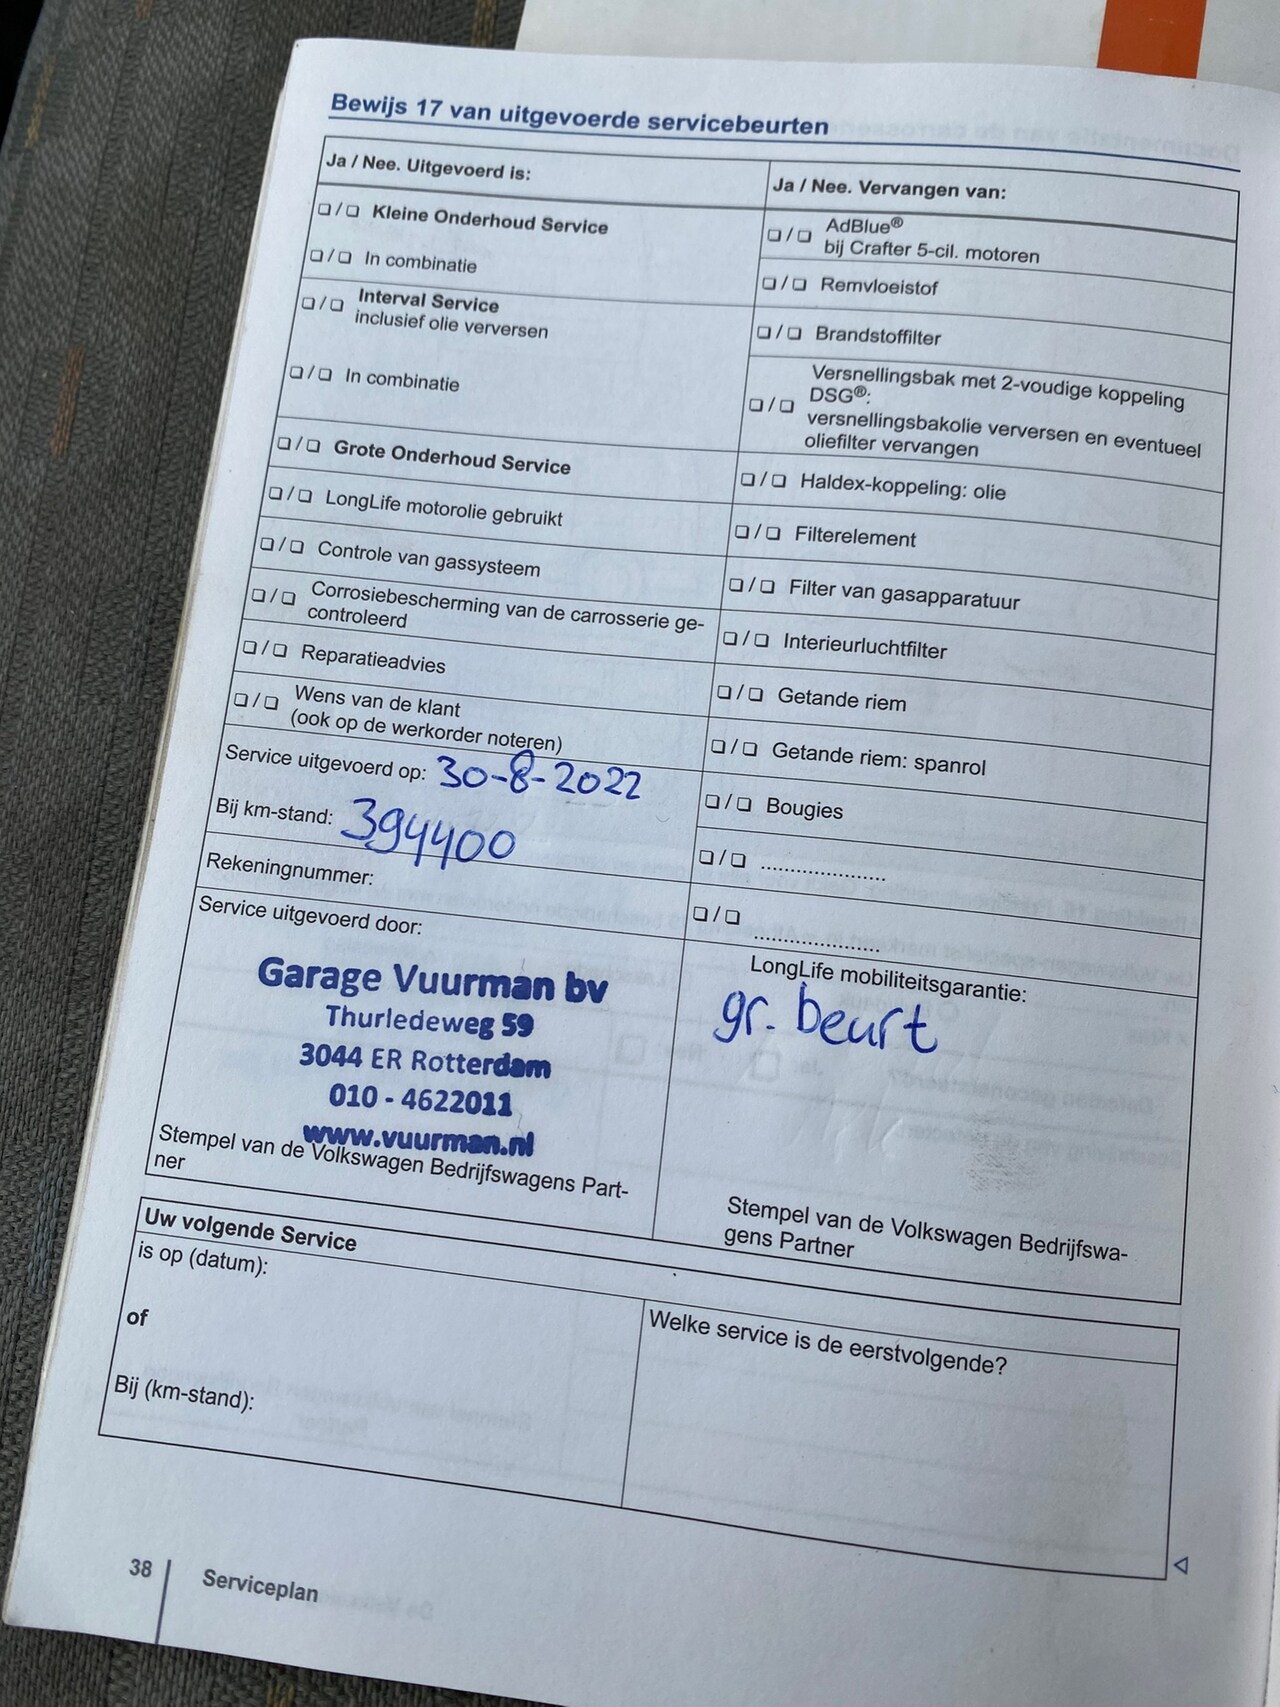 Bewijs 17 van uitgevoerde servicebeurten
Ja / Nee. Uitgevoerd is:
❑ / ❑ Kleine Onderhoud Service
❑ / ❑ In combinatie
❑ / ❑ Interval Service
inclusief olie verversen
❑ / ❑ In combinatie
❑ / ❑ Grote Onderhoud Service
❑ / ❑ LongLife motorolie gebruikt
❑ / ❑ Controle van gassysteem
❑ / ❑ Corrosiebescherming van de carrosserie ge-
controleerd
❑ / ❑ Reparatieadvies
❑ / ❑ Wens van de klant
(ook op de werkorder noteren)
Service uitgevoerd op: 30-8-2022
Bij km-stand: 394400
Rekeningnummer:
Service uitgevoerd door:
Garage Vuurman bv
Thurledeweg 59
3044 ER Rotterdam
010 - 4622011
www.vuurman.nl
Stempel van de Volkswagen Bedrijfswagens Part-
ner
Ja / Nee. Vervangen van:
❑ / ❑ AdBlue®
bij Crafter 5-cil. motoren
❑ / ❑ Remvloeistof
❑ / ❑ Brandstoffilter
❑ / ❑ Versnellingsbak met 2-voudige koppeling
DSG®:
versnellingsbakolie verversen en eventueel
oliefilter vervangen
❑ / ❑ Haldex-koppeling: olie
❑ / ❑ Filterelement
❑ / ❑ Filter van gasapparatuur
❑ / ❑ Interieurluchtfilter
❑ / ❑ Getande riem
❑ / ❑ Getande riem: spanrol
❑ / ❑ Bougies
❑ / ❑ .....................
❑ / ❑ .....................
LongLife mobiliteitsgarantie:
gr. beurt
Stempel van de Volkswagen Bedrijfswa-
gens Partner
Uw volgende Service
is op (datum):
of
Bij (km-stand):
Welke service is de eerstvolgende?
38 Serviceplan